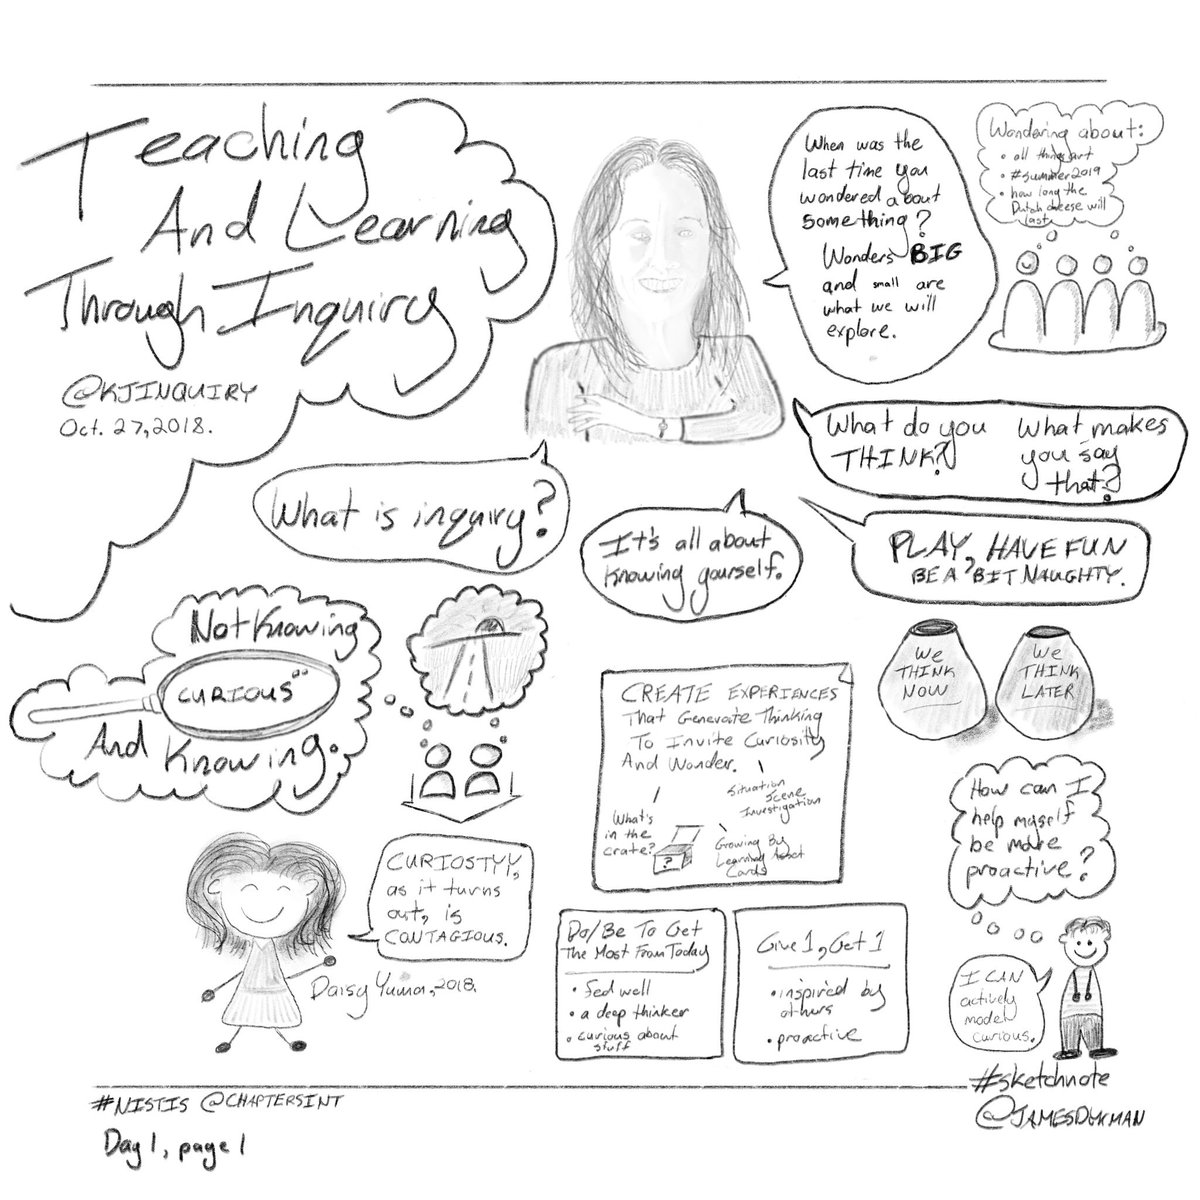 Teaching
And Learning
Through Inquiry
@KJINQUIRY
Oct. 27, 2018.
When was the
last time you
wondered about
something?
Wonders BIG
and small are
what we will
explore.
Wondering about:
• all things art
• #summer2019
• how long the
Dutch cheese will
last
What do you
THINK?
What makes
you say
that?
What is inquiry?
It's all about
knowing yourself.
PLAY, HAVE FUN
BE A BIT NAUGHTY.
Not Knowing
CURIOUS
And Knowing.
WE
THINK
NOW
WE
THINK
LATER
CREATE EXPERIENCES
That Generate Thinking
To Invite Curiosity
And Wonder.
What's
in the
crate?
?
Situation
Scene
Investigation
Growing By
Learning
Cards
How can I
help myself
be more
proactive?
CURIOSTYY,
as it turns
out, is
CONTAGIOUS.
Daisy Yuma, 2018.
Do/Be To Get
The Most From Today
• fed well
• a deep thinker
• curious about
stuff
Give 1, Get 1
• inspired by
others
• proactive
I CAN
actively
model
curious.
#sketchnote
@JAMESDYKMAN
#NISTIS @CHAPTERSINT
Day 1, page 1